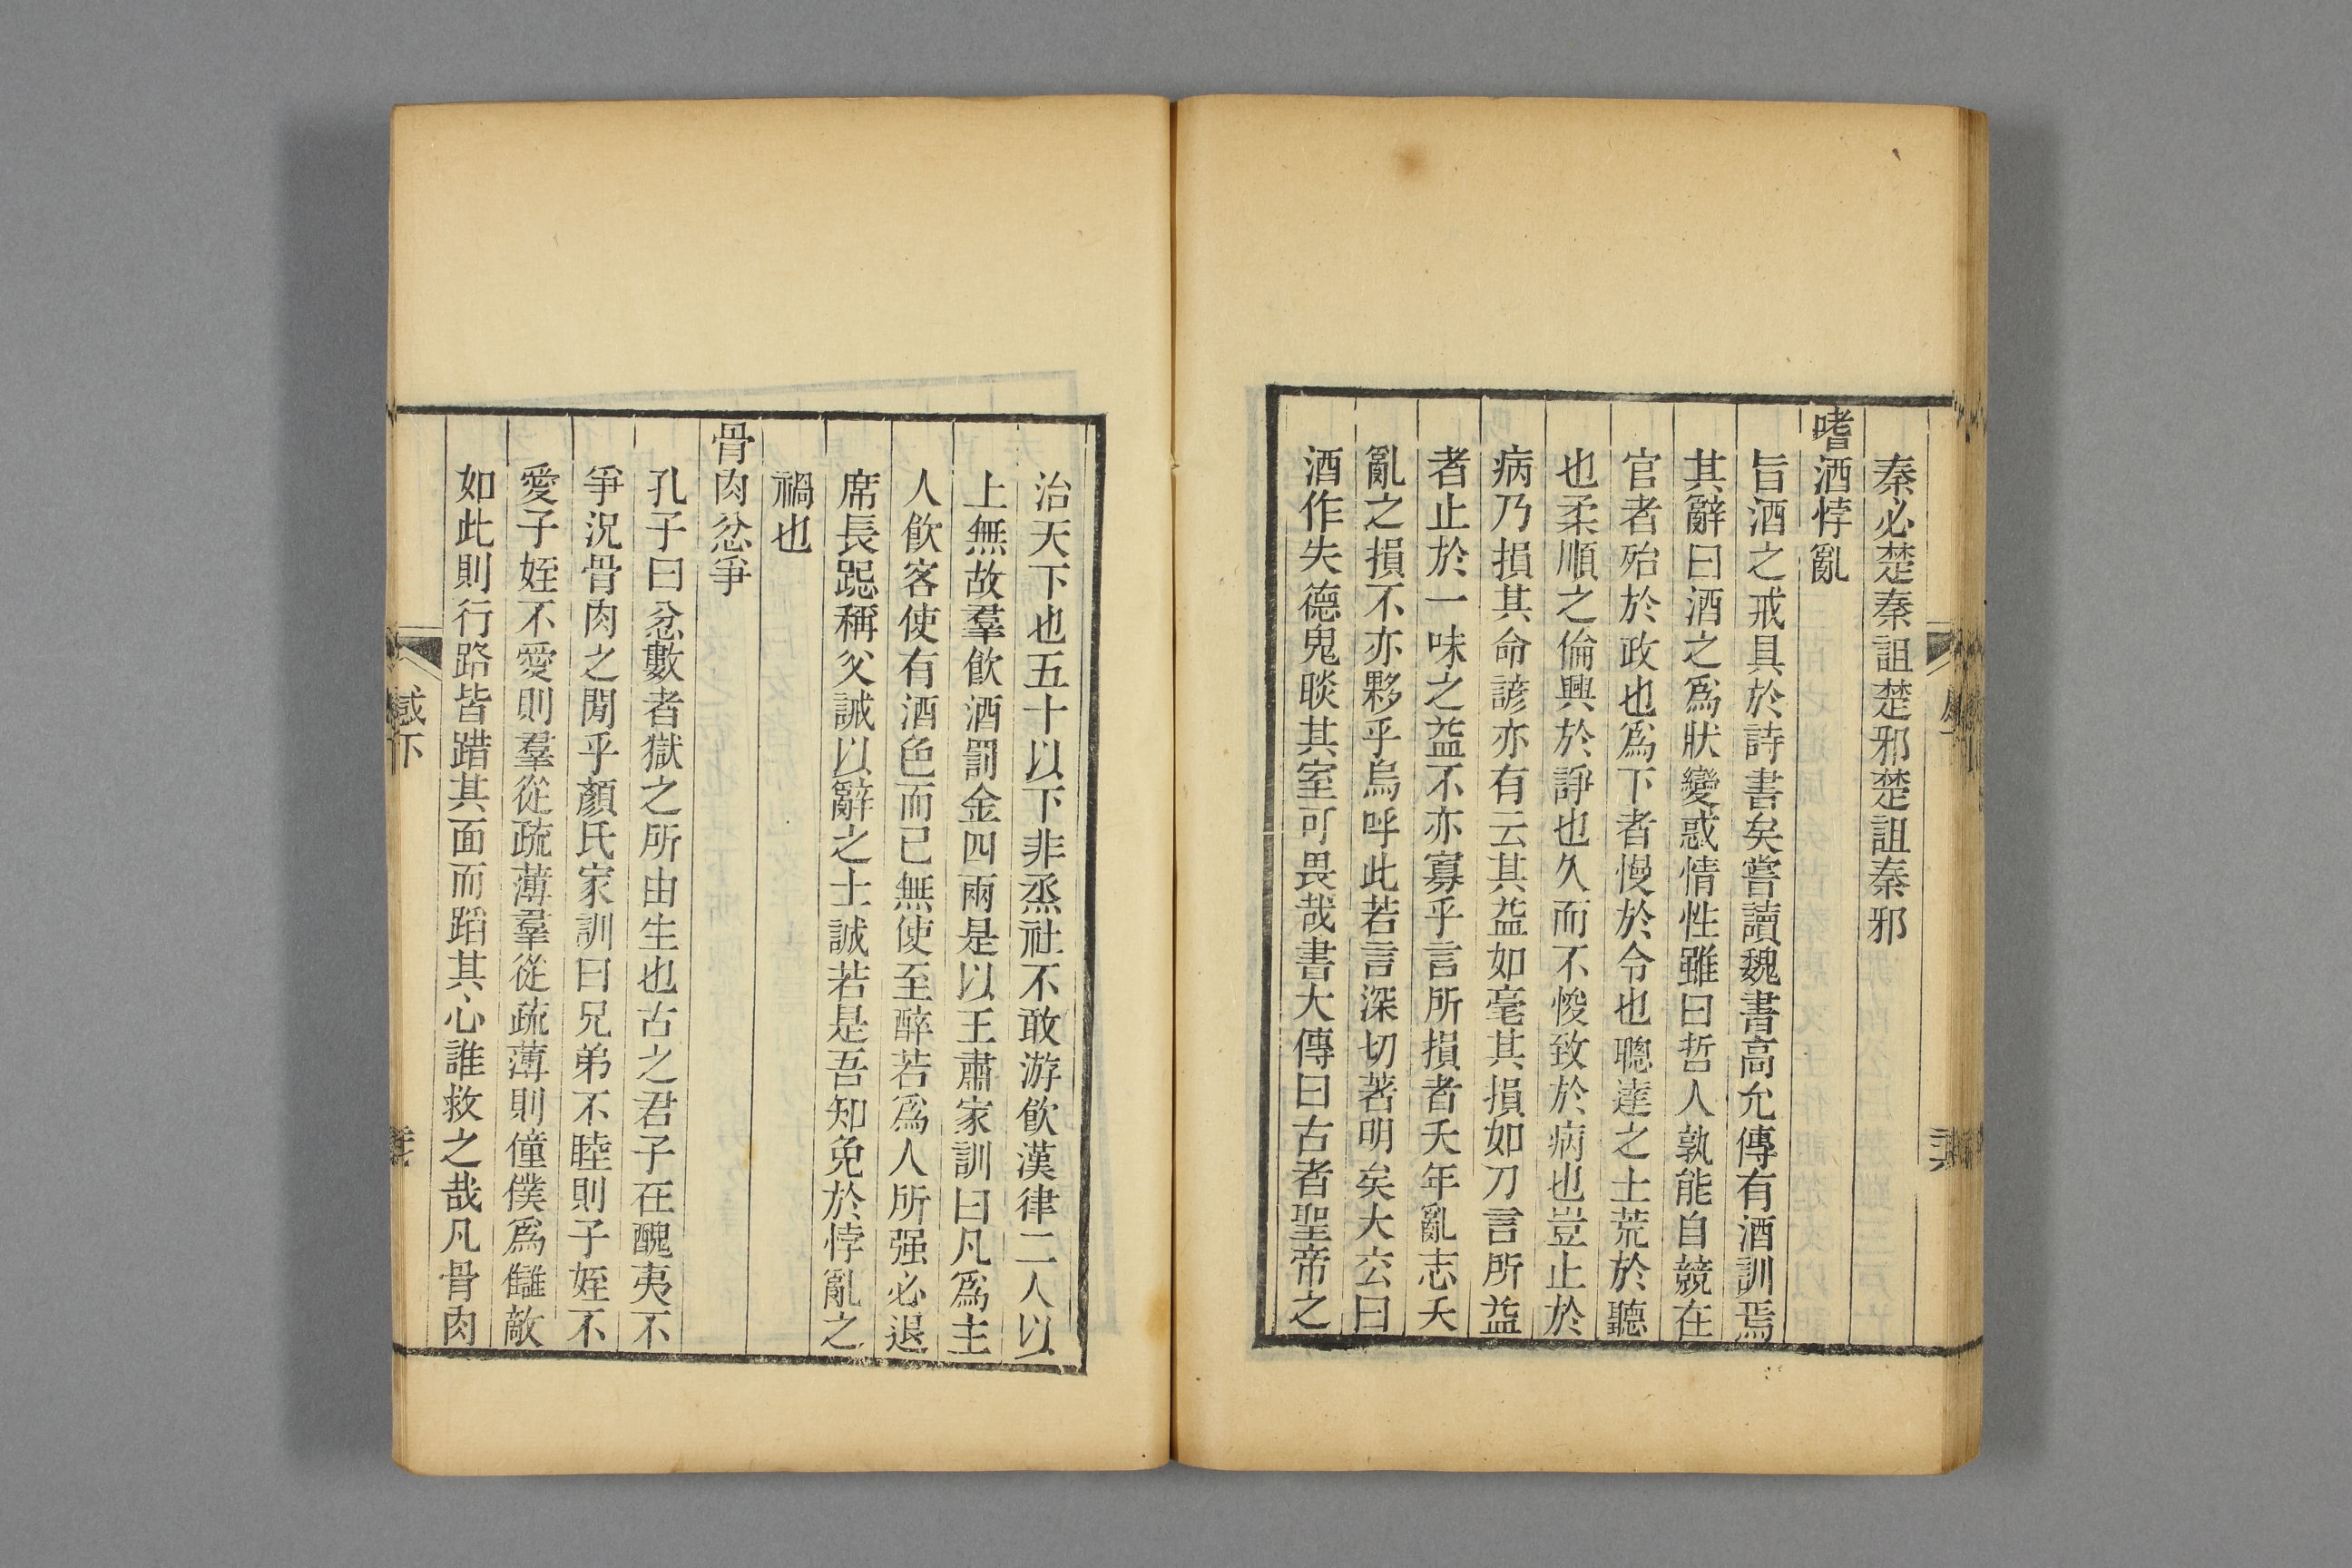 秦必楚秦詛楚邪楚詛秦邪
嗜酒悖亂
旨酒之戒具於詩書矣嘗讀魏書高允傳有酒訓焉
其辭曰酒之爲狀變惑情性雖曰哲人孰能自競在
官者殆於政也爲下者慢於令也聰達之士荒於聽
也柔順之倫興於諍也久而不悛致於病也豈止於
病乃損其命諺亦有云其益如毫其損如刀言所益
者止於一味之益不亦寡乎言所損者夭年亂志夭
亂之損不亦夥乎烏呼此若言深切著明矣大玄曰
酒作失德鬼睒其室可畏哉書大傳曰古者聖帝之
治天下也五十以下非烝社不敢游飮漢律二人以
上無故羣飮酒罰金四兩是以王肅家訓曰凡爲主
人飮客使有酒色而已無使至醉若爲人所强必退
席長跽稱父誡以辭之士誠若是吾知免於悖亂之
禍也
骨肉忿爭
孔子曰忿數者獄之所由生也古之君子在醜夷不
爭況骨肉之閒乎顏氏家訓曰兄弟不睦則子姪不
愛子姪不愛則羣從疏薄羣從疏薄則僮僕爲讎敵
如此則行路皆踖其面而蹈其心誰救之哉凡骨肉
惑下